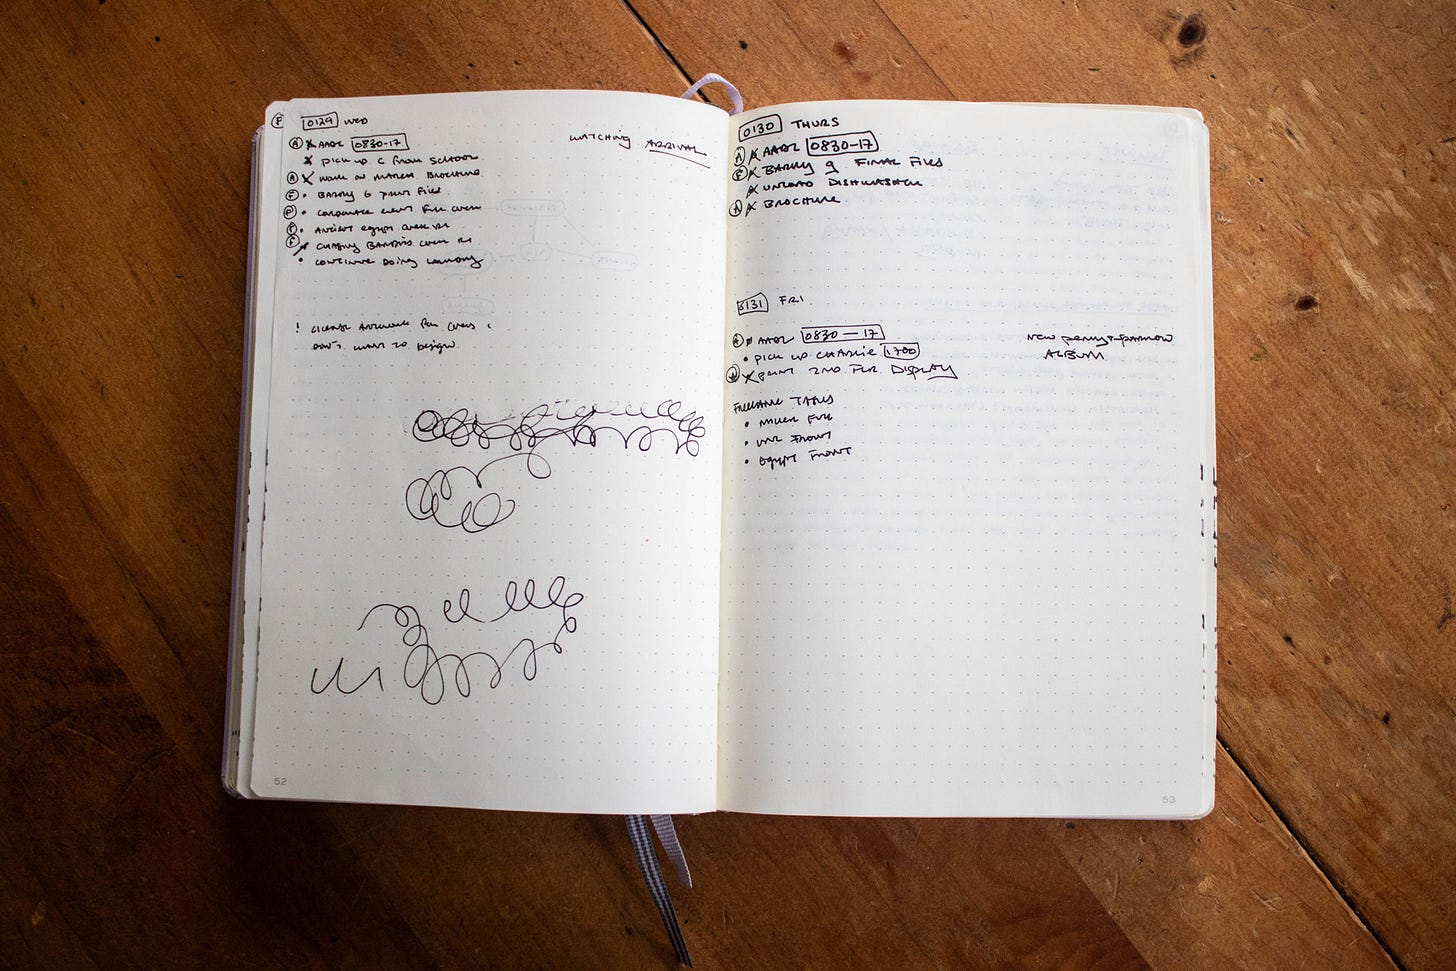 P 0129 WED
A x AADL 0830-17
x PICK UP C FROM SCHOOL
A x WORK ON MARCH BROCHURE
F • BARRY G PRINT FILES
P • CORPORATE EVENT FULL COVER
F • ANCIENT EGYPT COVER
F CHASING COVER
• CONTINUE DOING LAUNDRY
WATCHING ARRIVAL
! LICENSE ARTWORK FOR COVERS I
DON'T WANT TO DESIGN.
52
0130 THURS
A x AADL 0830-17
F x BARRY G FINAL FILES
x UNLOAD DISHWASHER
A x BROCHURE
0131 FRI
A AADL 0830-17
• PICK UP CHARLIE 1700
A x PRINT 2ND FLR DISPLAY
NEW PENNY + SPARROW
ALBUM
FREELANCE TASKS
• FULL
• FRONT
• EGYPT FRONT
53